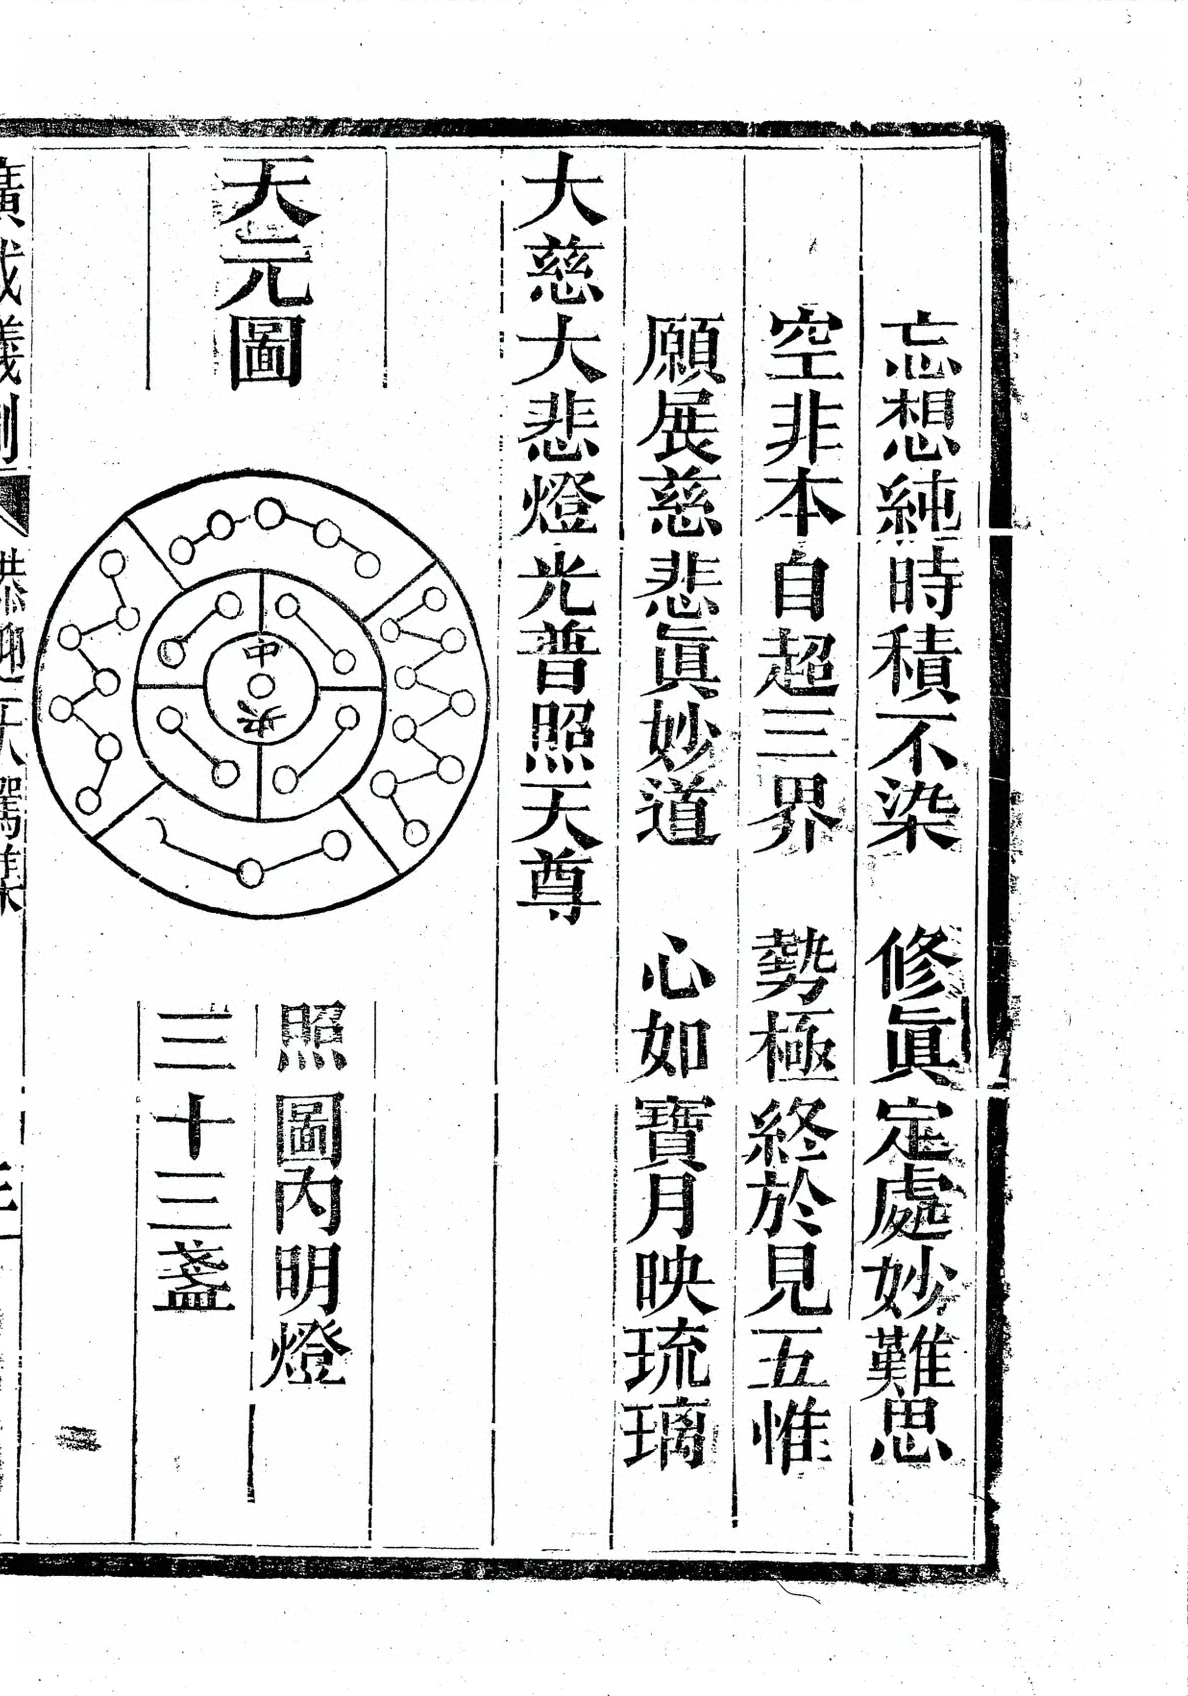 忘想純時積不染　修眞定處妙難思
空非本自超三界　勢極終於見五惟
願展慈悲眞妙道　心如寶月映琉璃
大慈大悲燈光普照天尊
天元圖
中央
照圖內明燈
三十三盞
廣成儀制